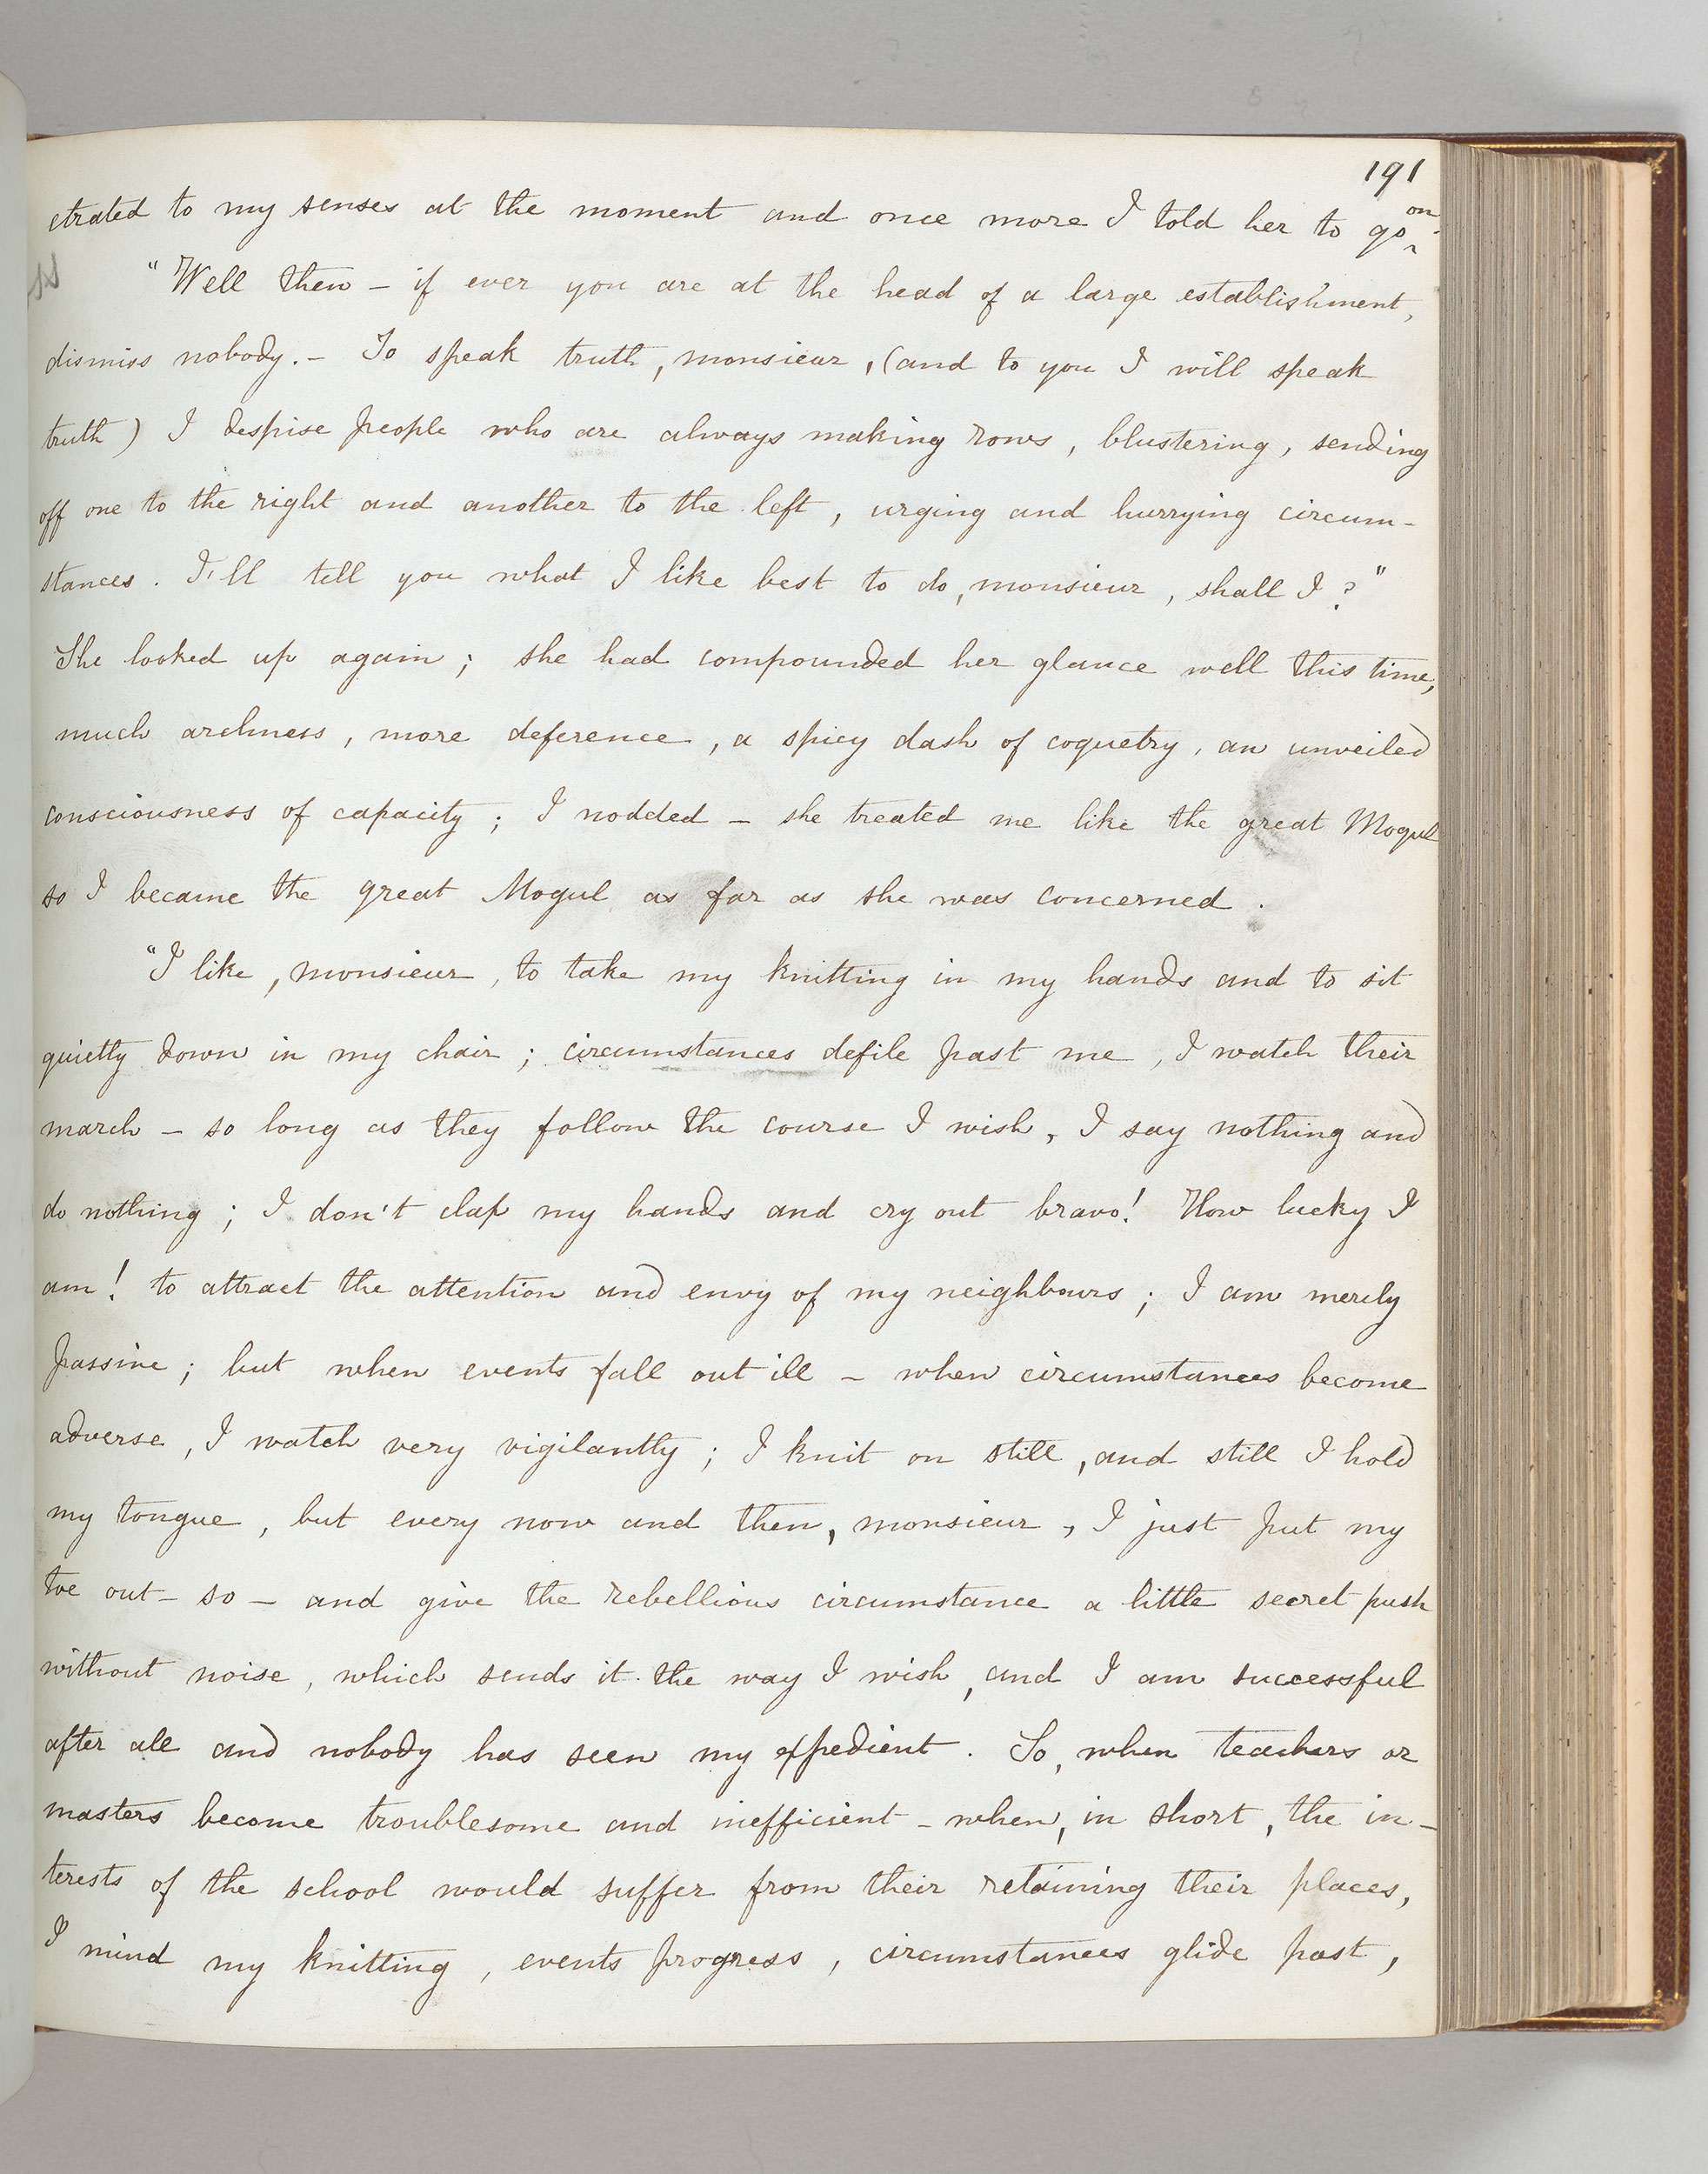 191
etrated to my senses at the moment and once more I told her to go on.
"Well then – if ever you are at the head of a large establishment,
dismiss nobody. – To speak truth, monsieur, (and to you I will speak
truth) I despise people who are always making rows, blustering, sending
off one to the right and another to the left, urging and hurrying circum-
stances. I'll tell you what I like best to do, monsieur, shall I?"
She looked up again; she had compounded her glance well this time;
much archness, more deference, a spicy dash of coquetry, an unveiled
consciousness of capacity; I nodded – she treated me like the great Mogul
so I became the great Mogul as far as she was concerned.
"I like, monsieur, to take my knitting in my hands and to sit
quietly down in my chair; circumstances defile past me, I watch their
march – so long as they follow the course I wish, I say nothing and
do nothing; I don't clap my hands and cry out bravo! How lucky I
am! to attract the attention and envy of my neighbours; I am merely
passive; but when events fall out ill – when circumstances become
adverse, I watch very vigilantly; I knit on still, and still I hold
my tongue, but every now and then, monsieur, I just put my
toe out – so – and give the rebellious circumstance a little secret push
without noise, which sends it the way I wish, and I am successful
after all and nobody has seen my expedient. So, when teachers or
masters become troublesome and inefficient – when, in short, the in-
terests of the school would suffer from their retaining their places,
I mind my knitting, events progress, circumstances glide past,